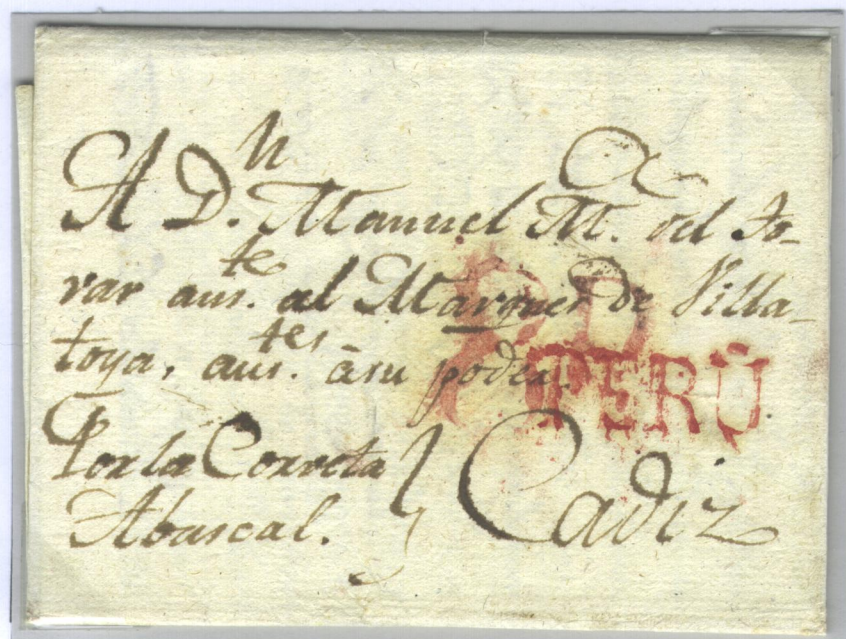 A D.n Manuel M.a del To-
var aus.te al Marques de Villa-
toya, aus.tes à su poder.
PERÚ
Por la Corveta
Abascal.
Cadiz